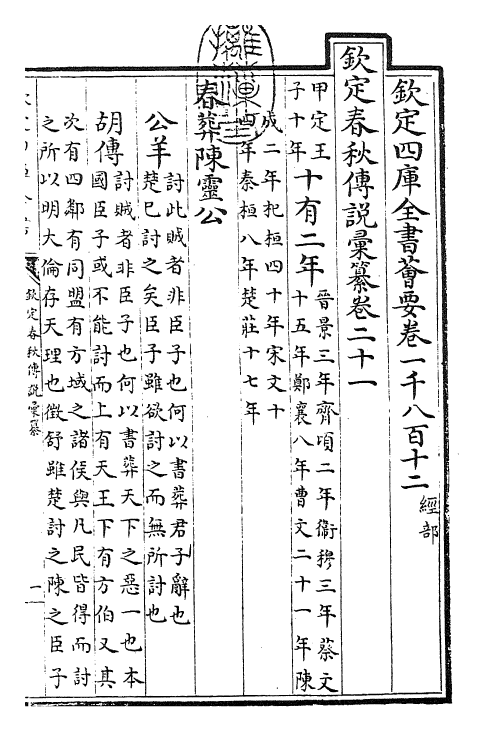 欽定四庫全書薈要卷一千八百十二 經部
欽定春秋傳說彙纂卷二十一
甲定王
子十年
十有二年
晉景三年齊頃二年衛穆三年蔡文
十五年鄭襄八年曹文二十一年陳
成二年杞桓四十年宋文十
四年秦桓八年楚莊十七年
春葬陳靈公
公羊
討此賊者非臣子也何以書葬君子辭也
楚已討之矣臣子雖欲討之而無所討也
胡傳
討賊者非臣子也何以書葬天下之惡一也本
國臣子或不能討而上有天王下有方伯又其
次有四鄰有同盟有方域之諸侯與凡民皆得而討
之所以明大倫存天理也徵舒雖楚討之陳之臣子
欽定春秋傳說彙纂
一